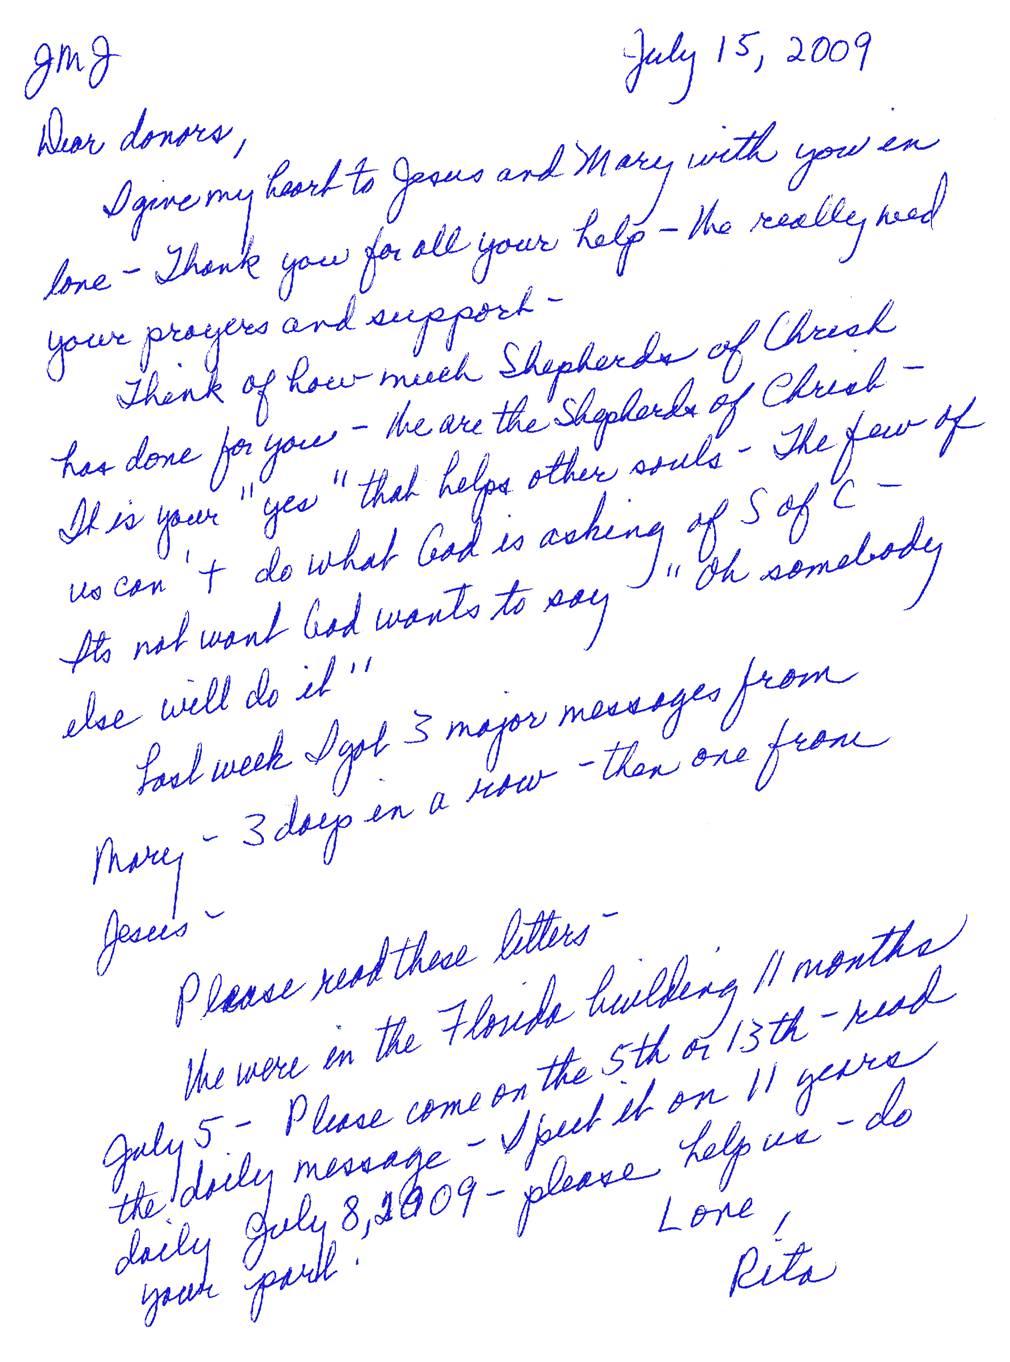 JMJ
July 15, 2009
Dear donors,
I give my heart to Jesus and Mary with you in
love – Thank you for all your help – We really need
your prayers and support –
Think of how much Shepherds of Christ
has done for you – We are the Shepherds of Christ –
It is your "yes" that helps other souls – The few of
us can't do what God is asking of S of C –
Its not want God wants to say "Oh somebody
else will do it"
Last week I got 3 major messages from
Mary – 3 days in a row – then one from
Jesus –
Please read these letters –
We were in the Florida building 11 months
July 5 – Please come on the 5th or 13th – read
the daily message – I put it on 11 years
daily July 8, 2009 – please help us – do
your part.
Love,
Rita